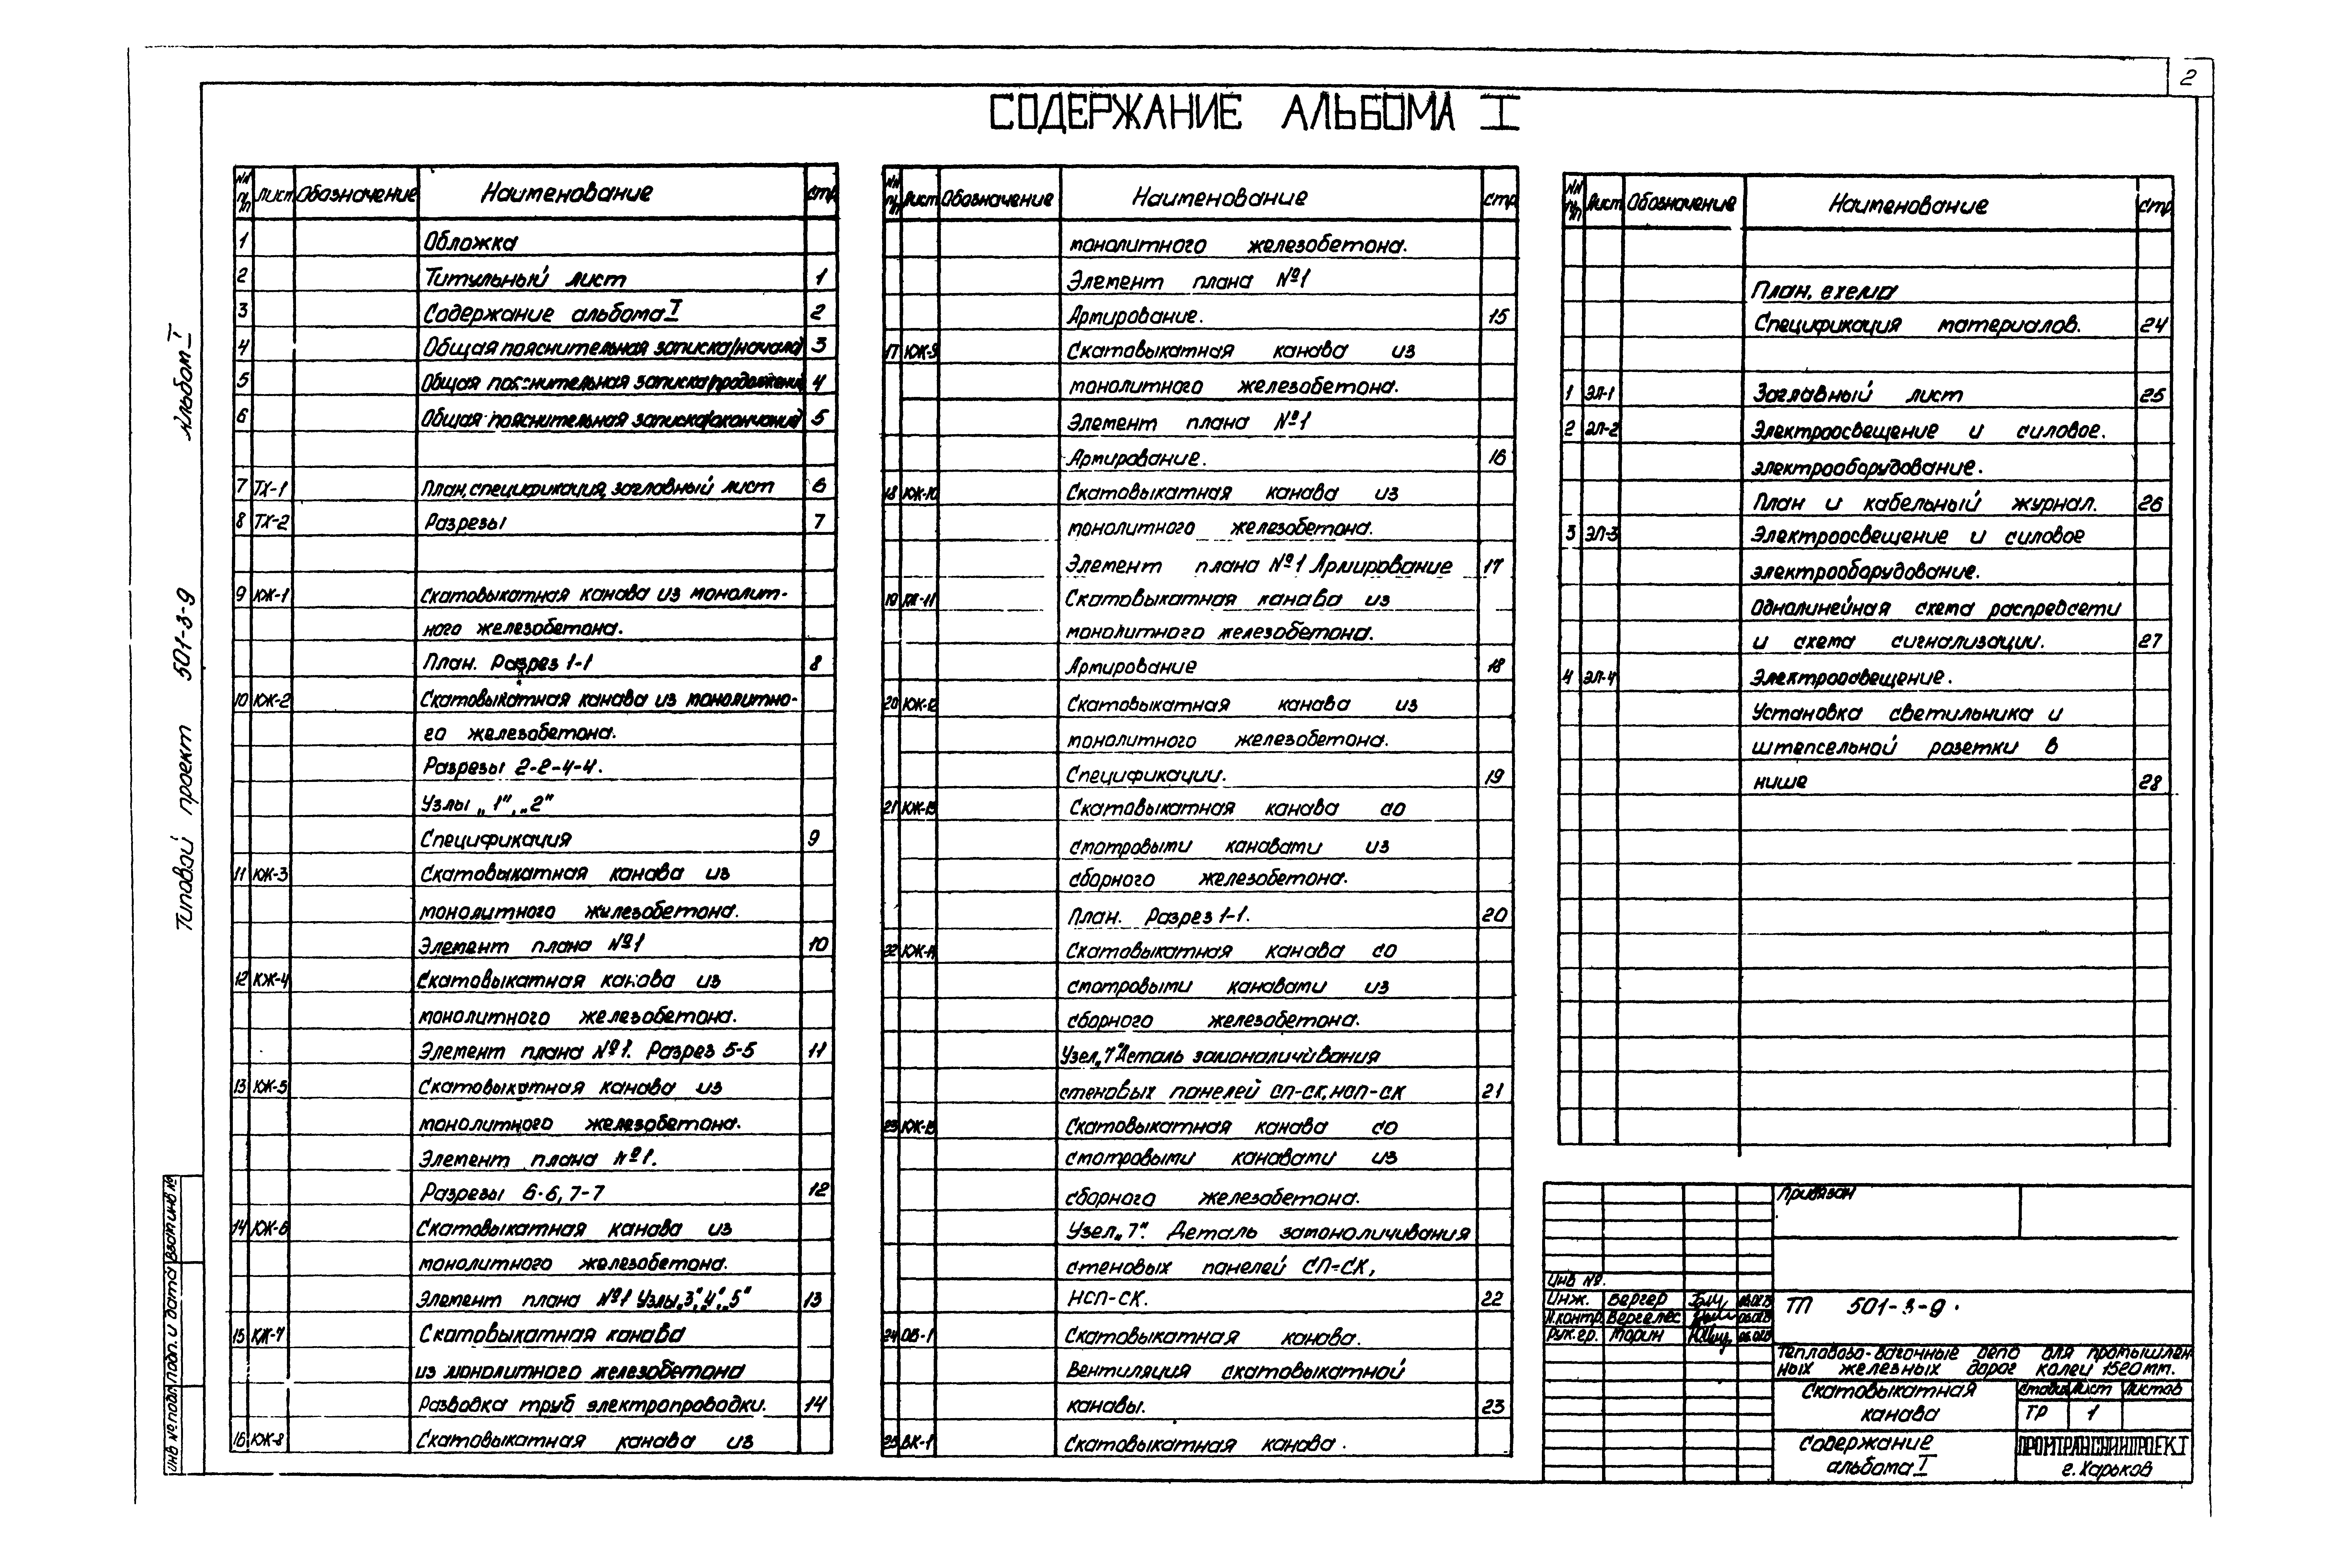 2
СОДЕРЖАНИЕ АЛЬБОМА I
Альбом I
Типовой проект 501-3-9
NN п/п Лист Обозначение Наименование стр
1 Обложка
2 Титульный лист 1
3 Содержание альбома I 2
4 Общая пояснительная записка(начало) 3
5 Общая пояснительная записка(продолжение) 4
6 Общая пояснительная записка(окончание) 5
7 ТХ-1 План, спецификация, заглавный лист 6
8 ТХ-2 Разрезы 7
9 КЖ-1 Скатовыкатная канава из монолит-
ного железобетона.
План. Разрез 1-1 8
10 КЖ-2 Скатовыкатная канава из монолитно-
го железобетона.
Разрезы 2-2-4-4.
Узлы „1", „2"
Спецификация 9
11 КЖ-3 Скатовыкатная канава из
монолитного железобетона.
Элемент плана №1 10
12 КЖ-4 Скатовыкатная канава из
монолитного железобетона.
Элемент плана №1. Разрез 5-5 11
13 КЖ-5 Скатовыкатная канава из
монолитного железобетона.
Элемент плана №1.
Разрезы 6-6, 7-7 12
14 КЖ-6 Скатовыкатная канава из
монолитного железобетона.
Элемент плана №1 Узлы „3", „4", „5" 13
15 КЖ-7 Скатовыкатная канава
из монолитного железобетона
Разводка труб электропроводки. 14
16 КЖ-8 Скатовыкатная канава из
NN п/п Лист Обозначение Наименование стр
монолитного железобетона.
Элемент плана №1
Армирование. 15
17 КЖ-9 Скатовыкатная канава из
монолитного железобетона.
Элемент плана №1
Армирование. 16
18 КЖ-10 Скатовыкатная канава из
монолитного железобетона.
Элемент плана №1 Армирование 17
19 КЖ-11 Скатовыкатная канава из
монолитного железобетона.
Армирование 18
20 КЖ-12 Скатовыкатная канава из
монолитного железобетона.
Спецификации. 19
21 КЖ-13 Скатовыкатная канава со
смотровыми канавами из
сборного железобетона.
План. Разрез 1-1. 20
22 КЖ-14 Скатовыкатная канава со
смотровыми канавами из
сборного железобетона.
Узел „7" Деталь замоноличивания
стеновых панелей СП-СК, НСП-СК 21
23 КЖ-15 Скатовыкатная канава со
смотровыми канавами из
сборного железобетона.
Узел „7". Деталь замоноличивания
стеновых панелей СП-СК,
НСП-СК. 22
24 ОВ-1 Скатовыкатная канава.
Вентиляция скатовыкатной
канавы. 23
25 ВК-1 Скатовыкатная канава.
NN п/п Лист Обозначение Наименование стр
План, схема
Спецификация материалов. 24
1 ЭЛ-1 Заглавный лист 25
2 ЭЛ-2 Электроосвещение и силовое.
электрооборудование.
План и кабельный журнал. 26
3 ЭЛ-3 Электроосвещение и силовое
электрооборудование.
Однолинейная схема распредсети
и схема сигнализации. 27
4 ЭЛ-4 Электроосвещение.
Установка светильника и
штепсельной розетки в
нише 28
Привязан
Инв №.
Инж. Бергер
Н.контр. Вергелес
Рук.гр. Марин
ТП 501-3-9.
Тепловозо-вагонные депо для промышлен-
ных железных дорог колеи 1520 мм.
Скатовыкатная
канава
Стадия Лист Листов
ТР 1
Содержание
альбома I
ПРОМТРАНСНИИПРОЕКТ
г. Харьков
Инв № подл. Подп. и дата Взам инв №